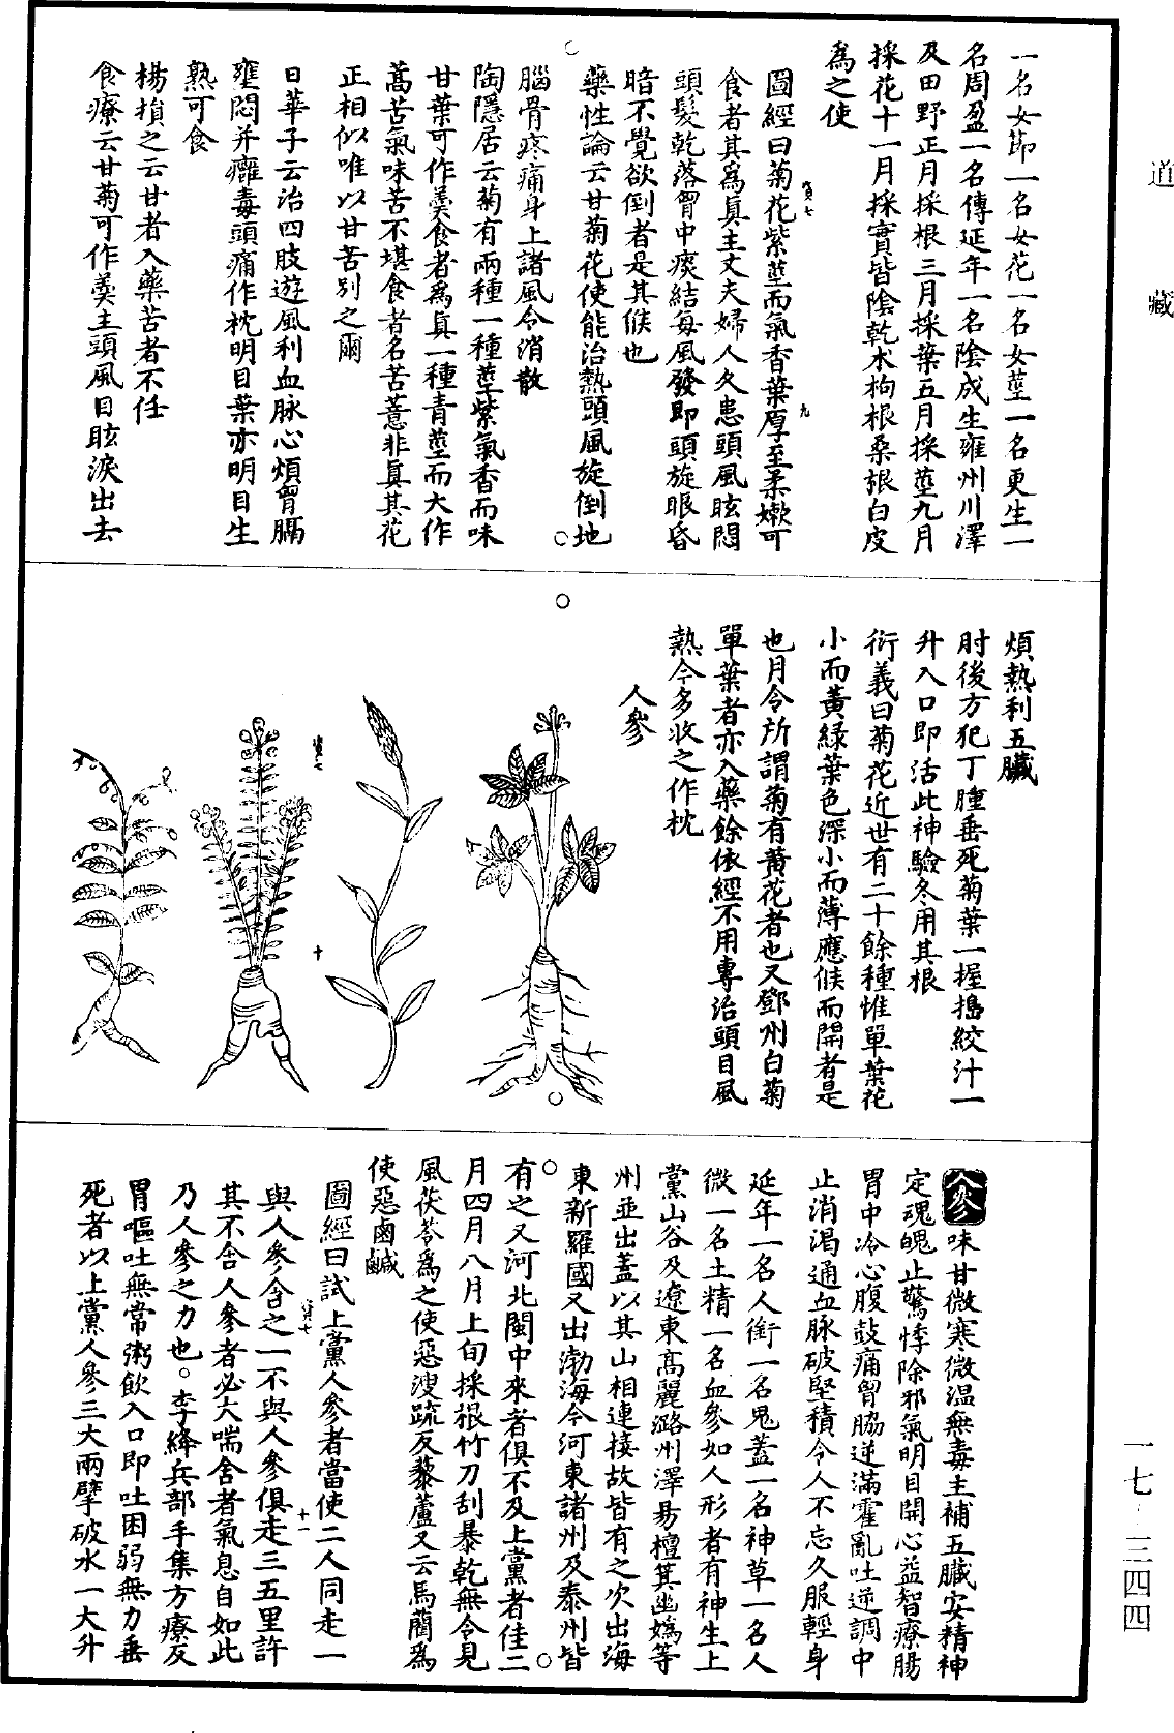 道藏
一名女節一名女花一名女莖一名更生一
名周盈一名傳延年一名陰成生雍州川澤
及田野正月採根三月採葉五月採莖九月
採花十一月採實皆陰乾术枸根桑根白皮
為之使
圖經曰菊花紫莖而氣香葉厚至柔嫰可
食者其為真主丈夫婦人久患頭風眩悶
頭髮乾落胷中痰結每風發即頭旋眼昏
暗不覺欲倒者是其候也
藥性論云甘菊花使能治熱頭風旋倒地
腦骨疼痛身上諸風令消散
陶隱居云菊有兩種一種莖紫氣香而味
甘葉可作羹食者為真一種青莖而大作
蒿苦氣味苦不堪食者名苦薏非真其花
正相似唯以甘苦别之爾
日華子云治四肢遊風利血脉心煩胷膈
壅悶并癰毒頭痛作枕明目葉亦明目生
熟可食
楊損之云甘者入藥苦者不任
食療云甘菊可作羹主頭風目眩淚出去
煩熱利五臟
肘後方犯丁腫垂死菊葉一握搗絞汁一
升入口即活此神驗冬用其根
衍義曰菊花近世有二十餘種惟單葉花
小而黃綠葉色深小而薄應候而開者是
也月令所謂菊有黃花者也又鄧州白菊
單葉者亦入藥餘依經不用專治頭目風
熱今多收之作枕
人參
人參味甘微寒微温無毒主補五臟安精神
定魂魄止驚悸除邪氣明目開心益智療腸
胃中冷心腹鼓痛胷脇逆滿霍亂吐逆調中
止消渴通血脉破堅積令人不忘久服輕身
延年一名人銜一名鬼蓋一名神草一名人
微一名土精一名血參如人形者有神生上
黨山谷及遼東高麗潞州澤易檀箕幽媯等
州並出蓋以其山相連接故皆有之次出海
東新羅國又出渤海今河東諸州及泰州皆
有之又河北閩中來者俱不及上黨者佳二
月四月八月上旬採根竹刀刮暴乾無令見
風茯苓為之使惡溲疏反藜蘆又云馬藺為
使惡鹵鹹
圖經曰試上黨人參者當使二人同走一
與人參含之一不與人參俱走三五里許
其不含人參者必大喘含者氣息自如此
乃人參之力也○李絳兵部手集方療反
胃嘔吐無常粥飲入口即吐困弱無力垂
死者以上黨人參三大兩擘破水一大升
一七·三四四